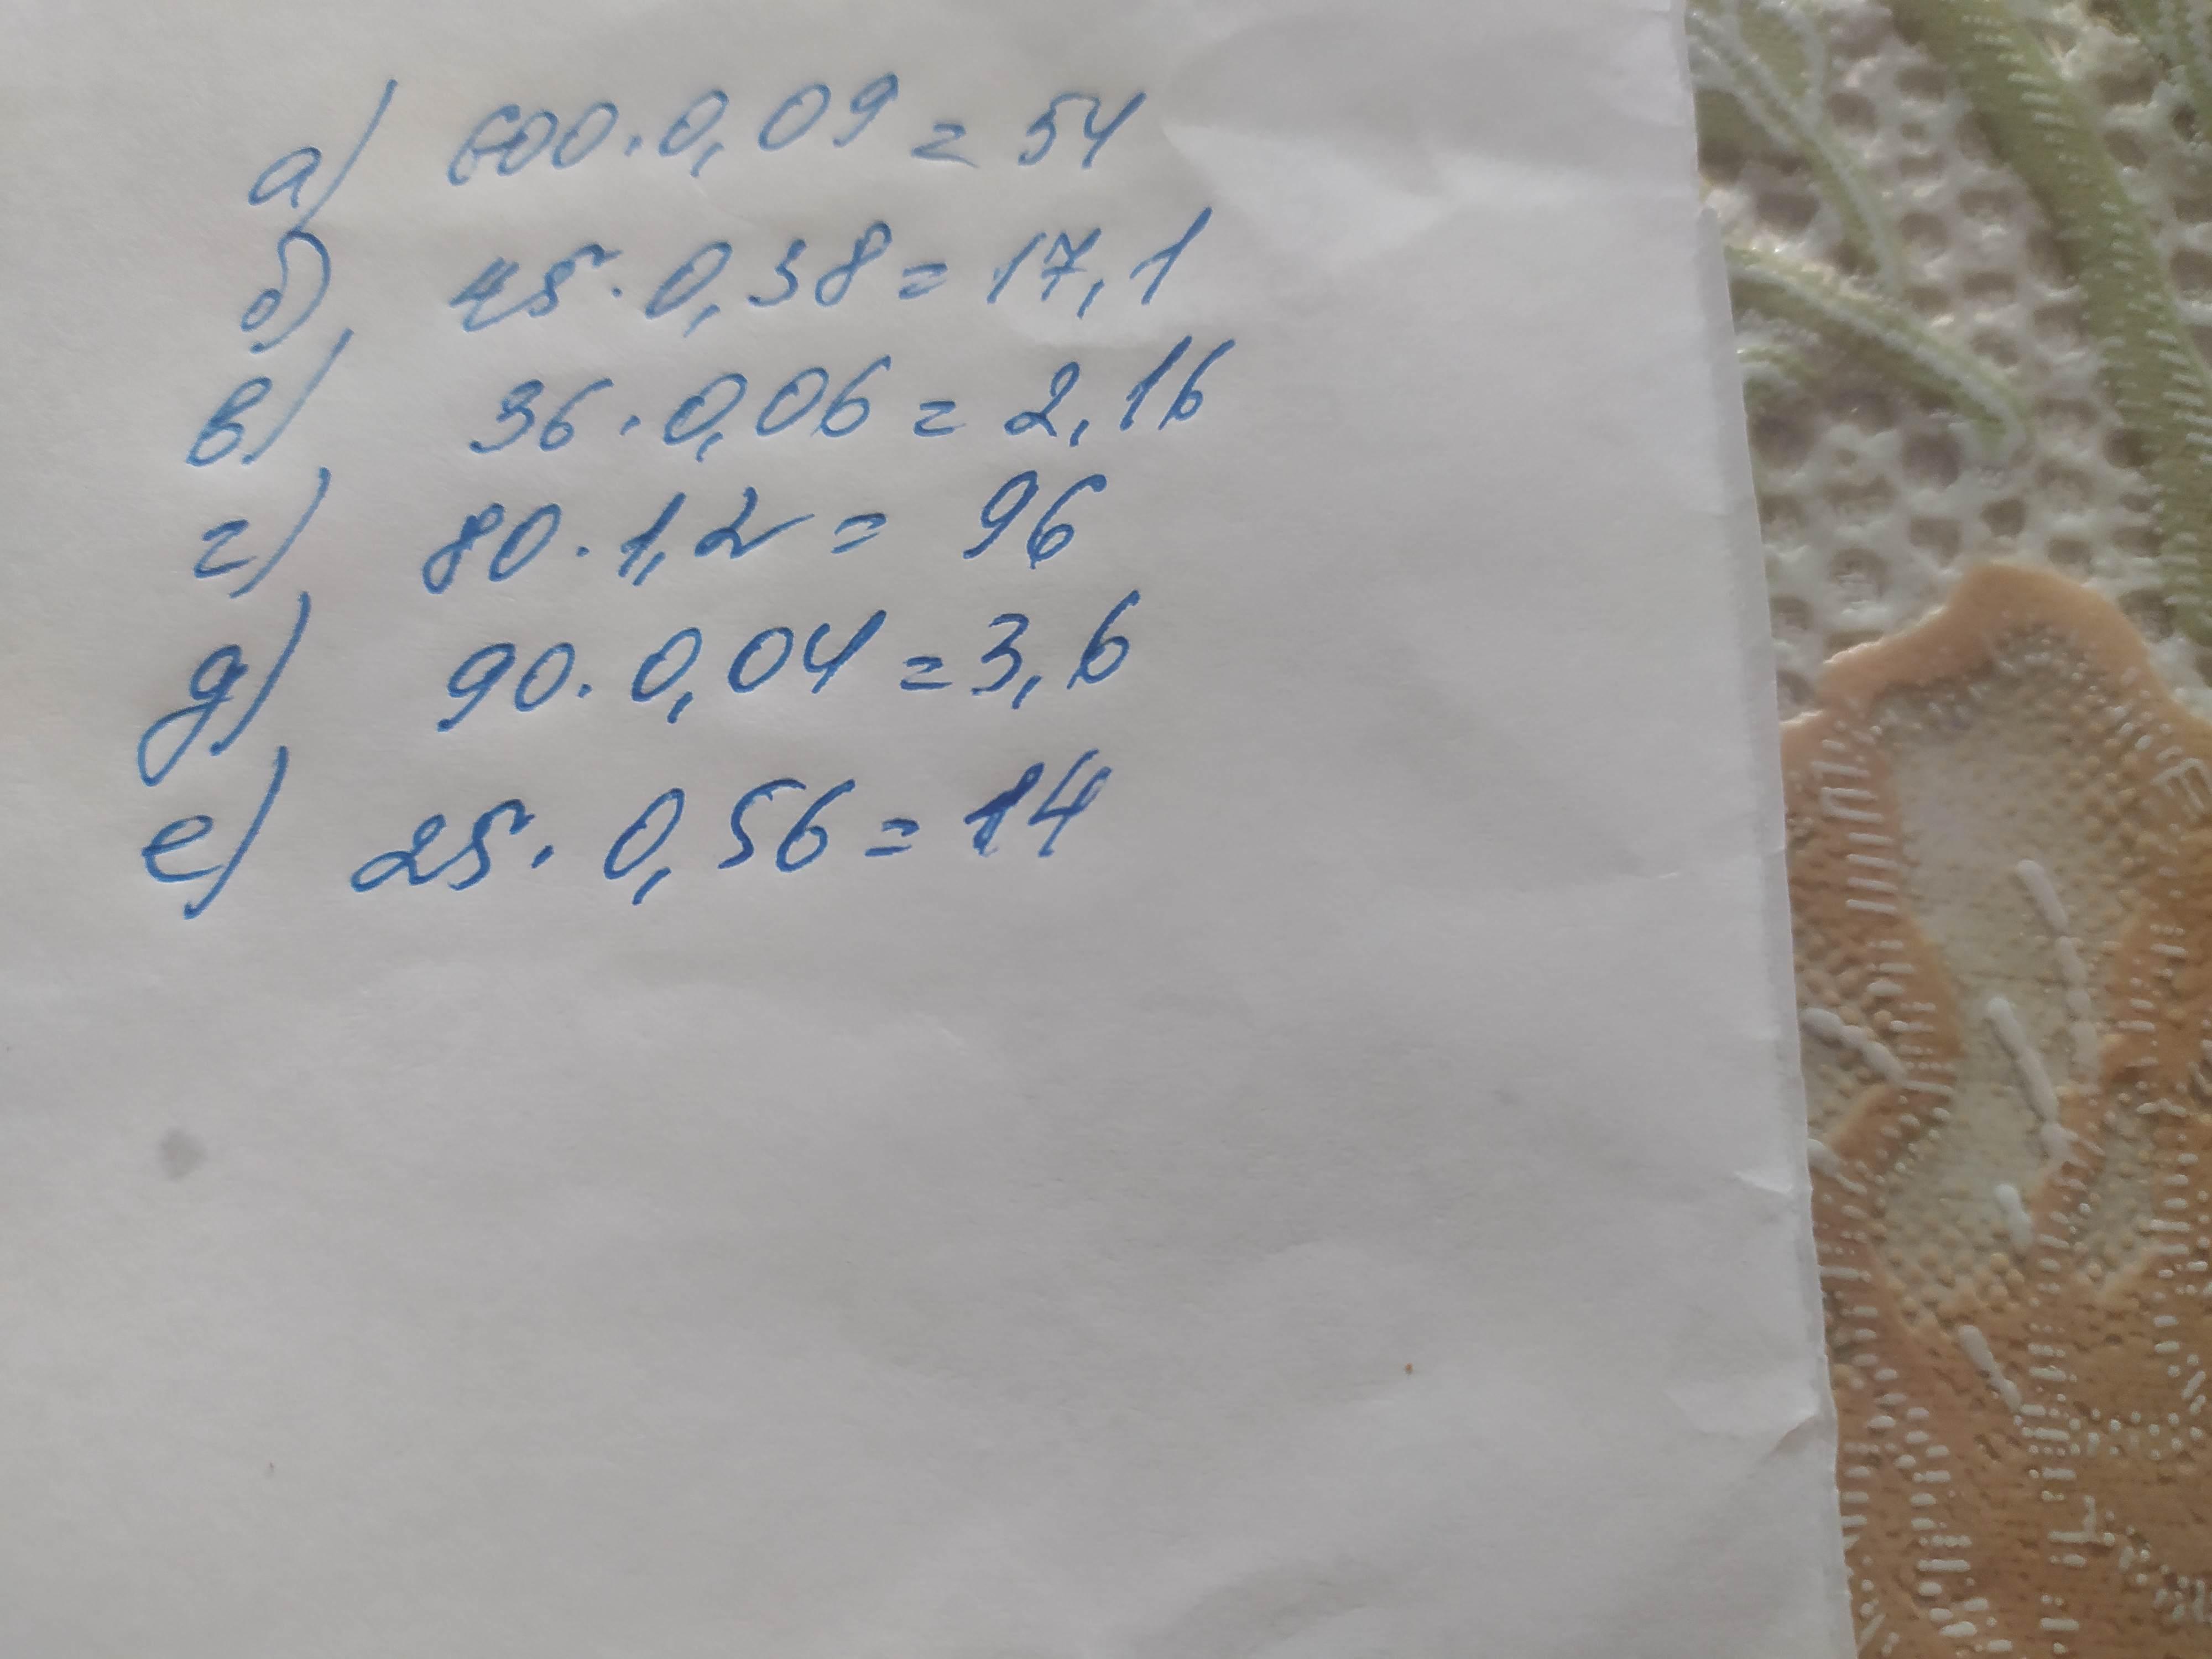 а) 600·0,09 = 54
б) 45·0,38 = 17,1
в) 36·0,06 = 2,16
г) 80·1,2 = 96
д) 90·0,04 = 3,6
е) 25·0,56 = 14